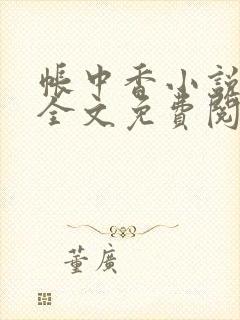 帳中香小説
全文免費閱
董廣